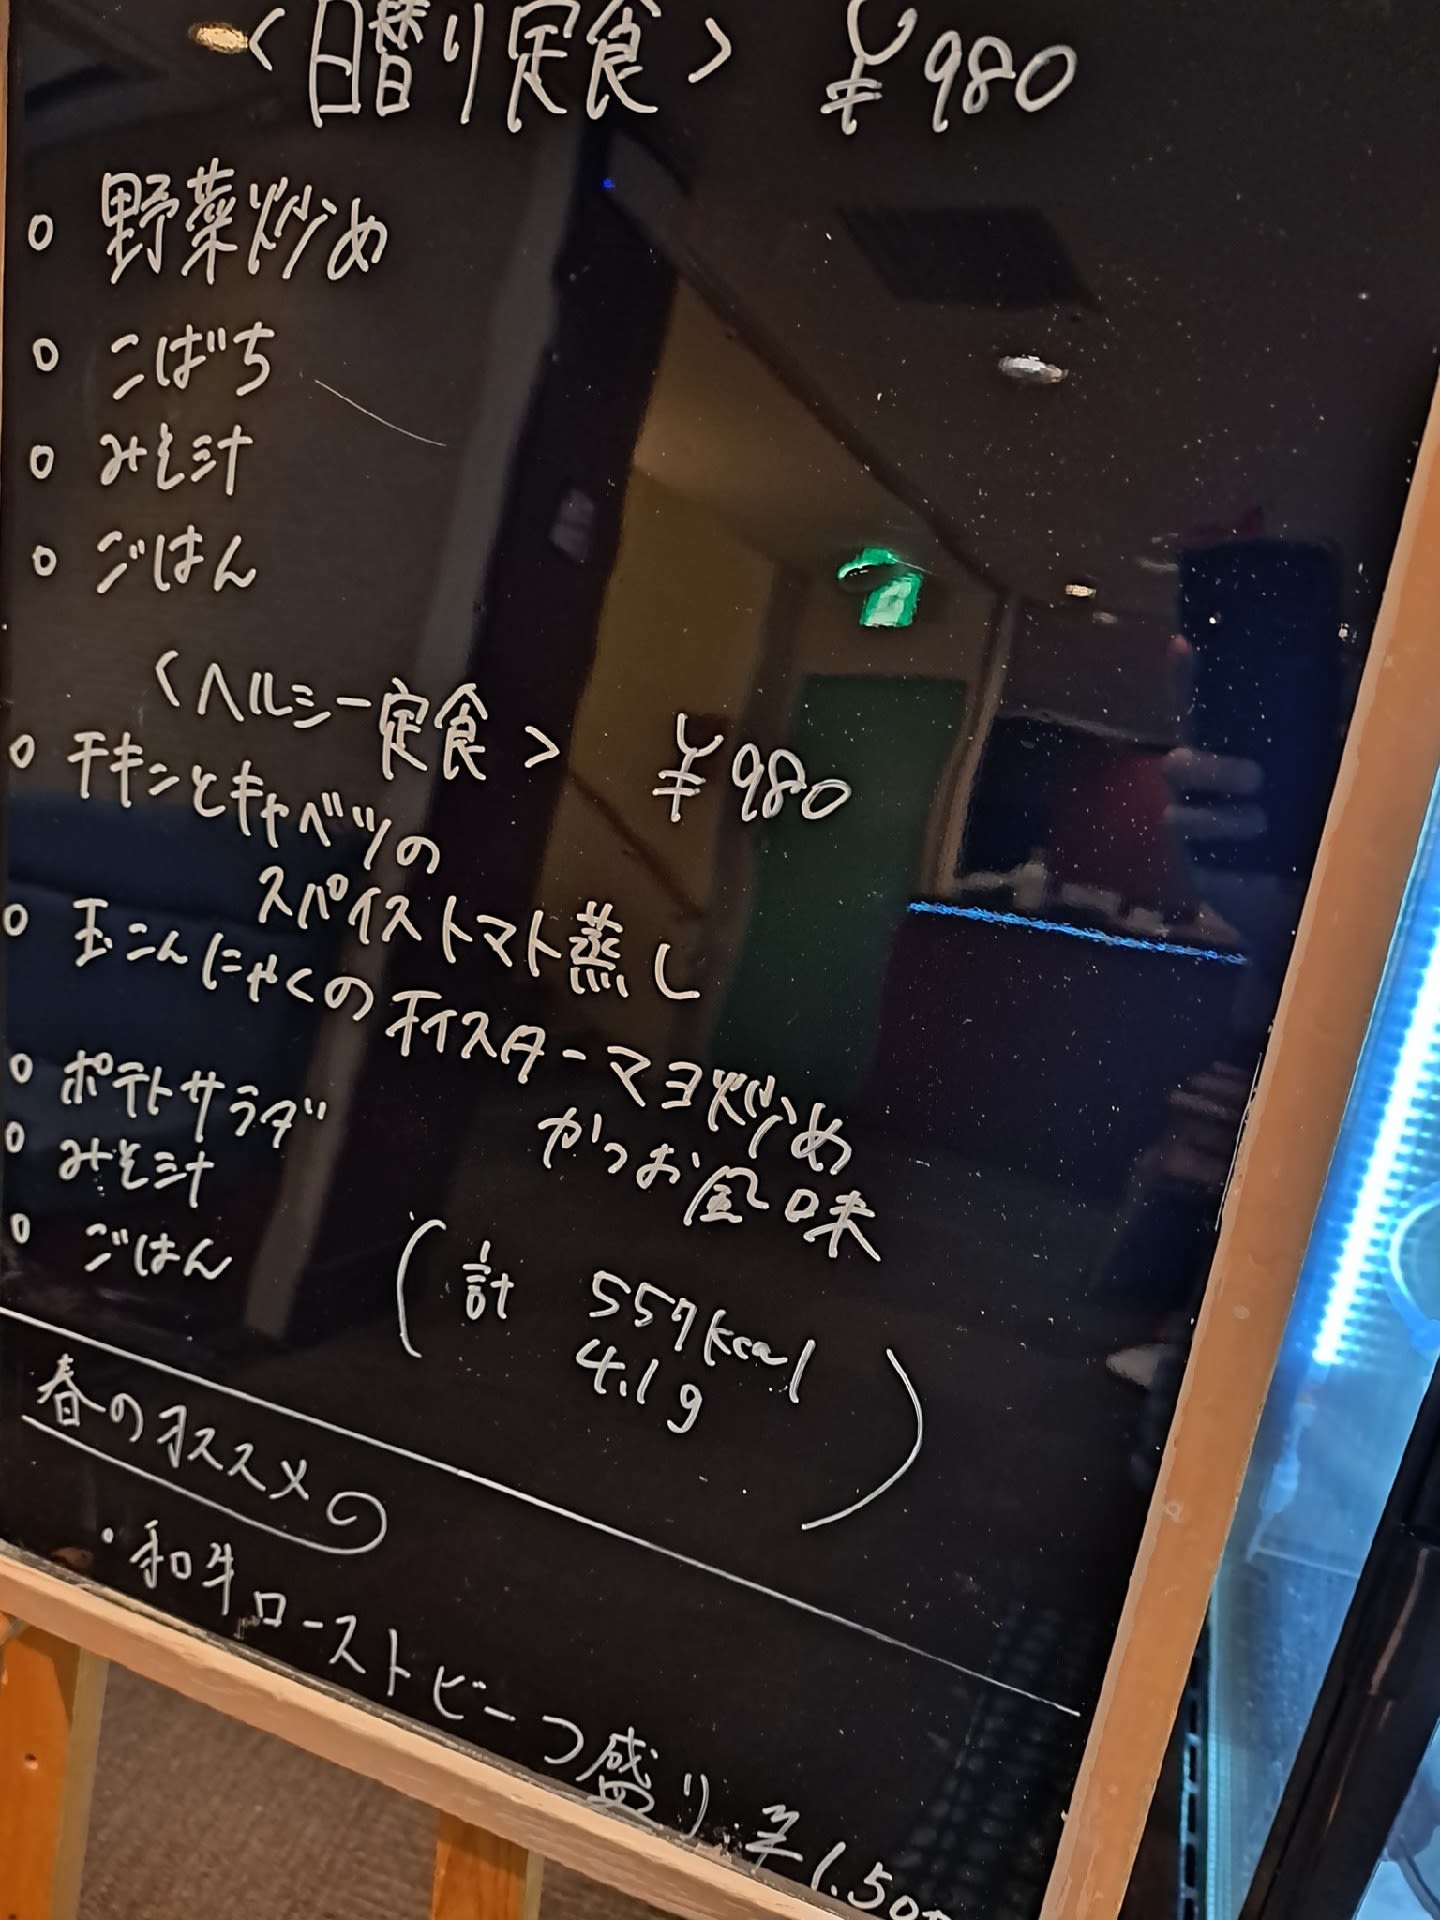 <日替り定食> ¥980
○ 野菜炒め
○ こばち
○ みそ汁
○ ごはん
<ヘルシー定食> ¥980
○ チキンとキャベツの
スパイストマト蒸し
○ 玉こんにゃくのオイスターマヨ炒め
かつお風味
○ ポテトサラダ
○ みそ汁
○ ごはん
(計 557kcal
4.1g)
春のオススメ
・和牛ローストビーフ盛り ¥1,50